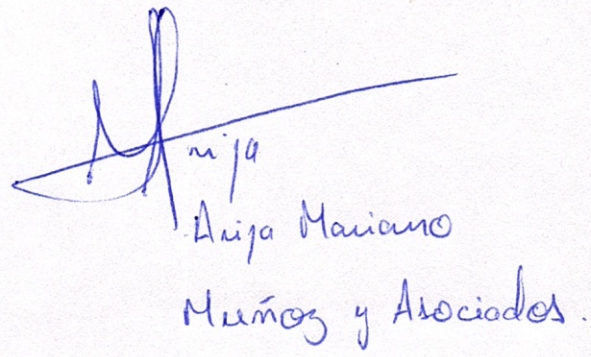 Arija
Arija Mariano
Muñoz y Asociados.